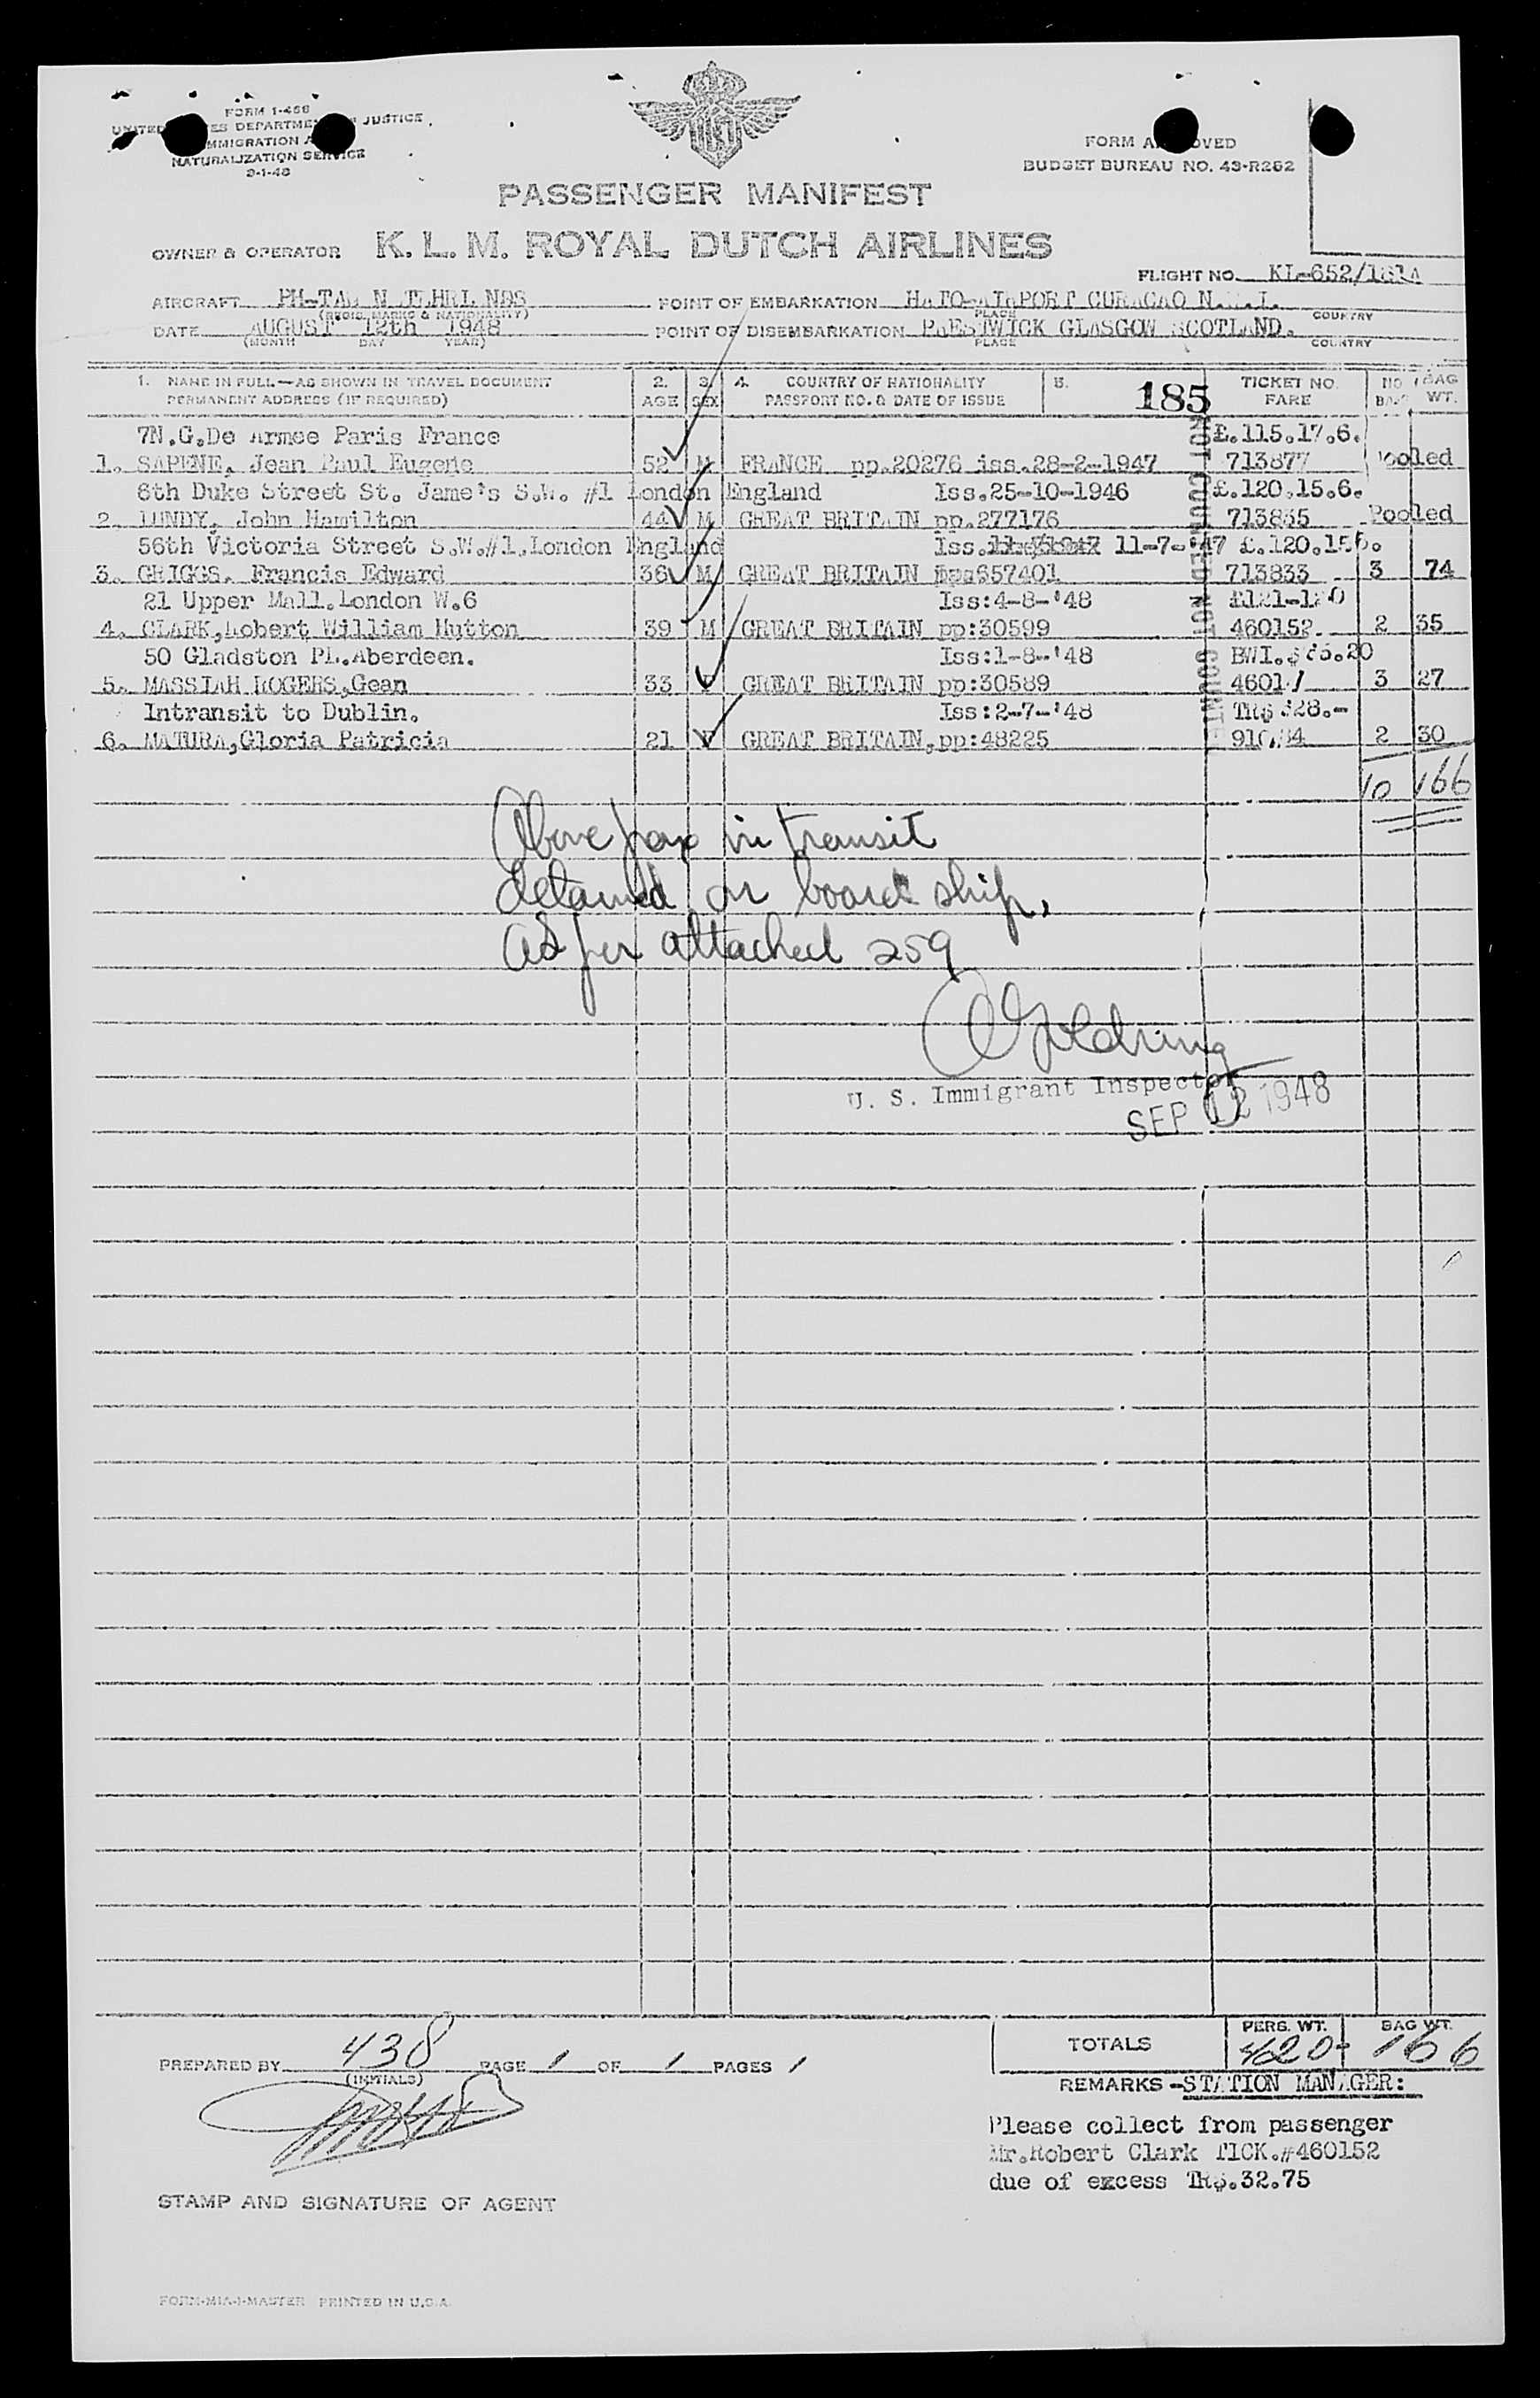 FORM I-466
UNITED STATES DEPARTMENT OF JUSTICE
IMMIGRATION AND
NATURALIZATION SERVICE
9-1-48
KLM
FORM APPROVED
BUDGET BUREAU NO. 43-R262
PASSENGER MANIFEST
OWNER & OPERATOR K. L. M. ROYAL DUTCH AIRLINES
FLIGHT NO. KL-652/
AIRCRAFT PH- N NBS POINT OF EMBARKATION HATO-AIRPORT CURACAO N.W.I.
(REGIS. MARKS & NATIONALITY) PLACE COUNTRY
DATE AUGUST 12th 1948 POINT OF DISEMBARKATION PRESTWICK GLASGOW SCOTLAND.
(MONTH DAY YEAR) PLACE COUNTRY
1. NAME IN FULL—AS SHOWN IN TRAVEL DOCUMENT 2. 3. 4. COUNTRY OF NATIONALITY 5. 185 TICKET NO. NO BAG
PERMANENT ADDRESS (IF REQUIRED) AGE SEX PASSPORT NO. & DATE OF ISSUE FARE BAGS WT.
7N.G.De Armee Paris France £.115.17.6.
1. SAPENE, Jean Paul Eugene 52 M FRANCE pp.20276 iss.28-2-1947 713877 Pooled
6th Duke Street St. Jame's S.W. #1 London England Iss.25-10-1946 £.120.15.6.
2. LUNDY, John Hamilton 44 M GREAT BRITAIN pp.277176 713835 Pooled
56th Victoria Street S.W.#1.London England Iss. 11-7-'47 £.120.15.6.
3. GRIGGS, Francis Edward 36 M GREAT BRITAIN 657401 713833 3 74
21 Upper Mall.London W.6 Iss:4-8-'48
4. CLARK,Robert William Hutton 39 M GREAT BRITAIN pp:30599 460152 2 35
50 Gladston Pl.Aberdeen. Iss:1-8-'48 BWI.
5. MASSIAH ROGERS,Gean 33 F GREAT BRITAIN pp:30589 3 27
Intransit to Dublin. Iss:2-7-'48 TR$ 328.-
6. MATURA,Gloria Patricia 21 F GREAT BRITAIN,pp:48225 2 30
NOT COUNTED NOT COUNTE
10 166
Above pax in transit
detained on board ship,
as per attached 259
Goldring
U. S. Immigrant Inspector
SEP 12 1948
PREPARED BY 438 PAGE 1 OF 1 PAGES 1
(INITIALS)
TOTALS PERS. WT. 420- BAG WT. 166
REMARKS -STATION MANAGER:
Please collect from passenger
Mr.Robert Clark TICK.#460152
due of excess TR$.32.75
STAMP AND SIGNATURE OF AGENT
FORM-MIA-1-MASTER PRINTED IN U.S.A.